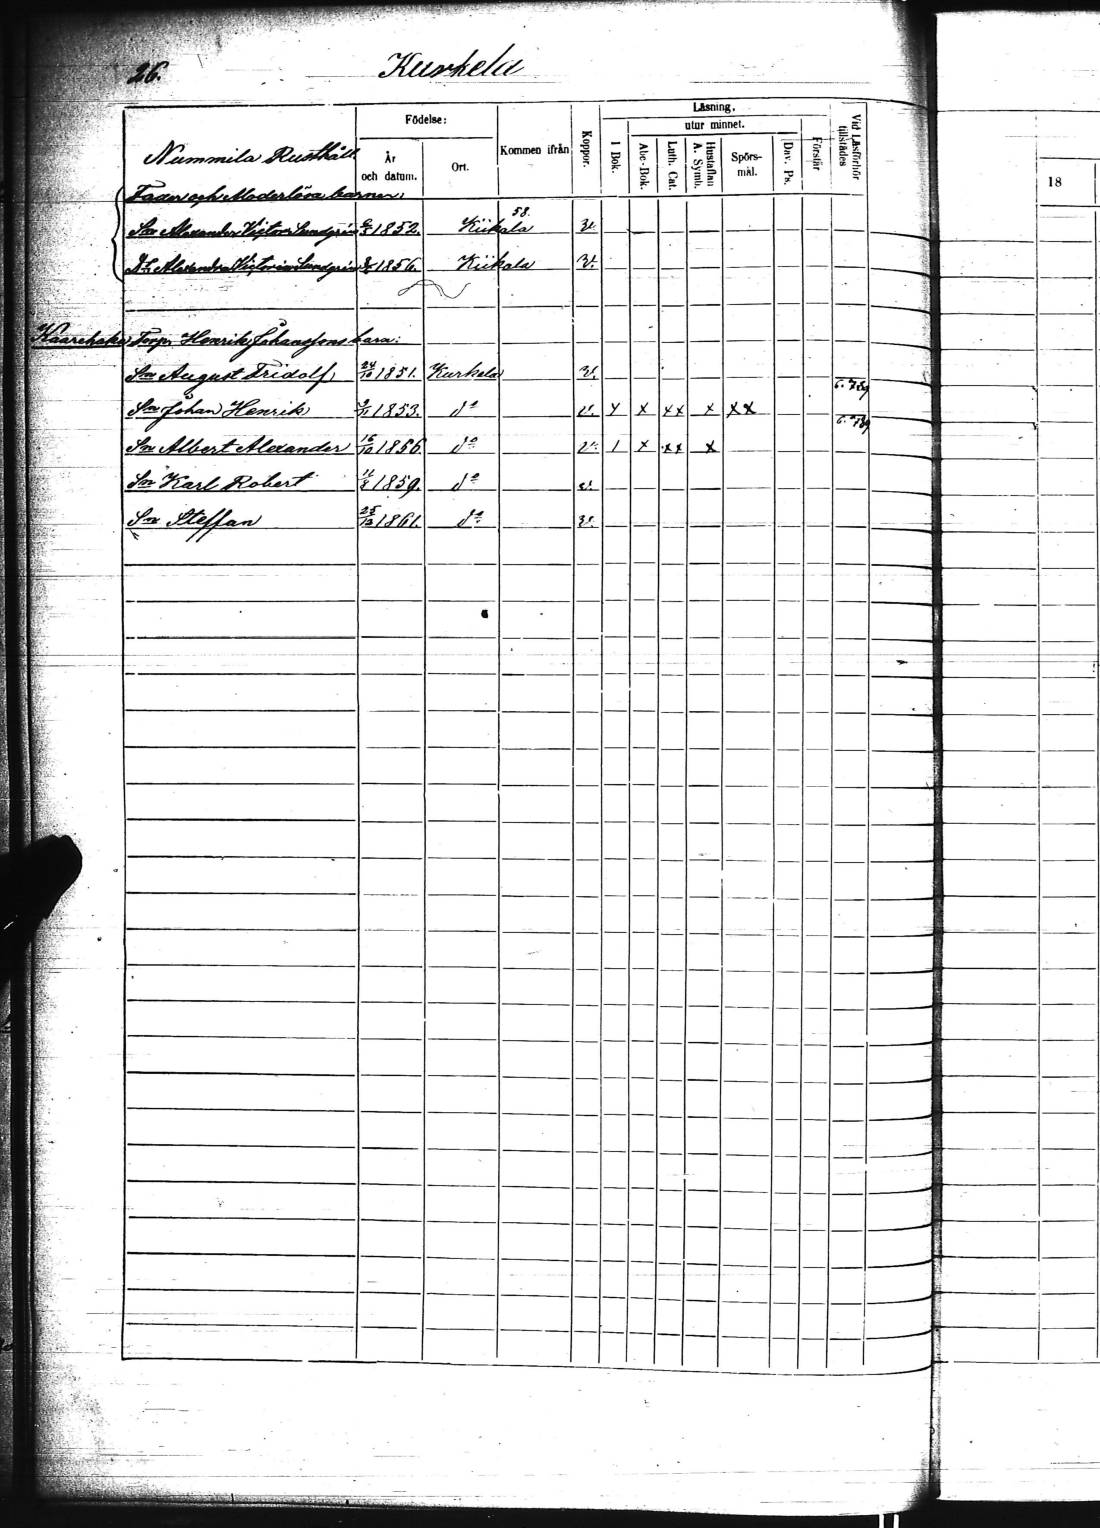 26. Kurkela
Nummila Rusthåll.
Födelse:
År och datum.
Ort.
Kommen ifrån
Koppor.
Läsning.
utur minnet.
I Bok.
Abc-Bok.
Luth. Cat.
Hustaflan A. Symb.
Spörs-mål.
Dav. Ps.
Förstår
Vid Läsförhör tillstädes
18
Fader och Moderlösa barnen:
58.
Sn Alexander Victor Lundgrén 1852. Kiikala v.
Dr Alexandra Victorina Lundgrén 1856. Kiikala v.
Torp. Henrik Johanssons barn:
Sn August Fridolf 24/10 1851. Kurkela v.
Sn Johan Henrik 1853. do v. x x xx x xx
Sn Albert Alexander 16/10 1856. do v. 1 x xx x
Sn Karl Robert 1859. do v.
Sn Steffan 25/12 1861. do v.